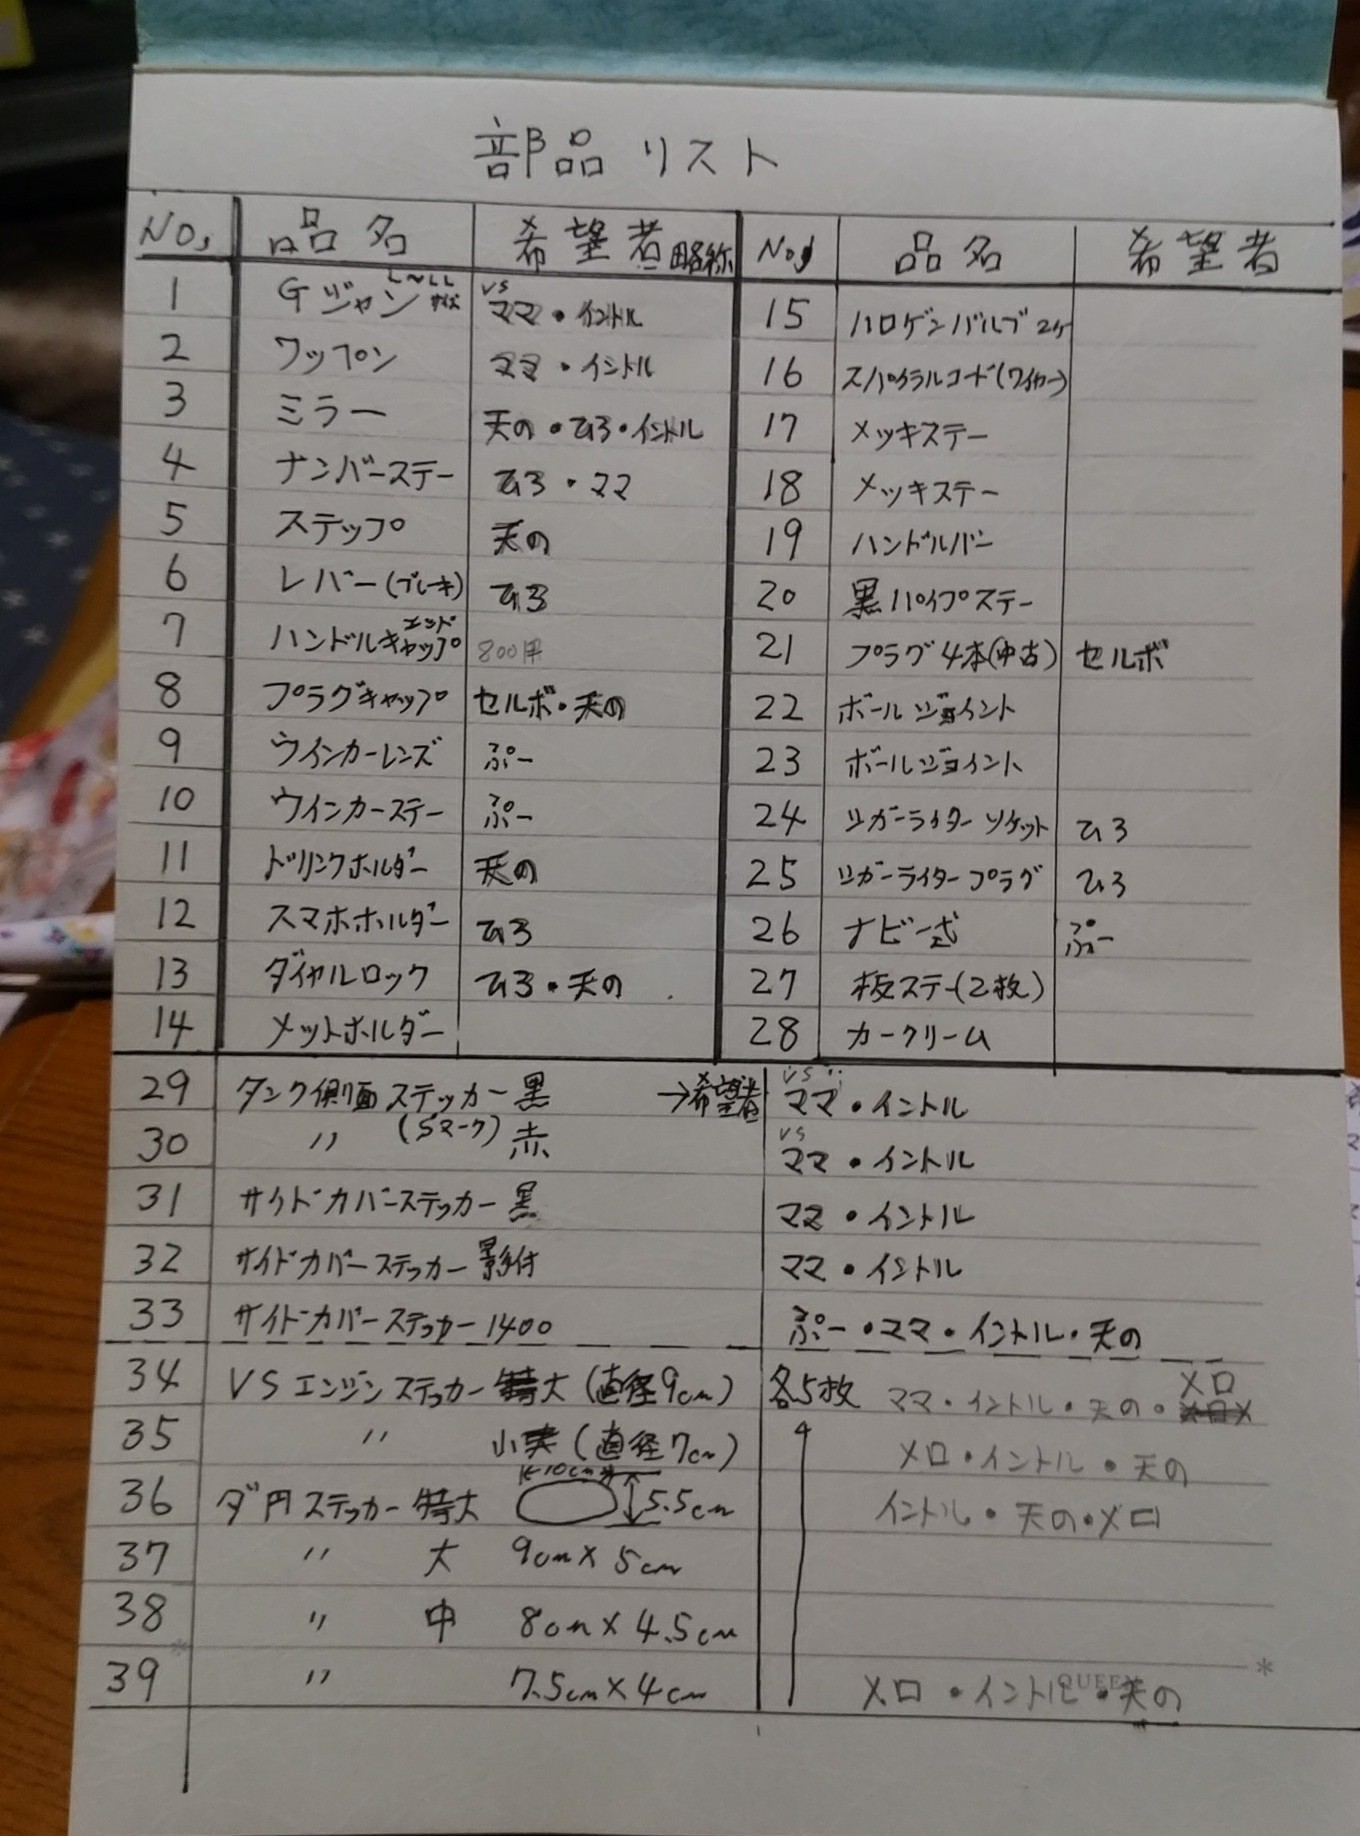 部品リスト
No. 品名 希望者 略称 No. 品名 希望者
1 Gジャン L~LL サイズ VS ママ・イントル
2 ワップン ママ・イントル
3 ミラー 天の・ひろ・イントル
4 ナンバーステー ひろ・ママ
5 ステップ 天の
6 レバー(ブレーキ) ひろ
7 ハンドルエンドキャップ 800用
8 プラグキャップ セルボ・天の
9 ウインカーレンズ ぷー
10 ウインカーステー ぷー
11 ドリンクホルダー 天の
12 スマホホルダー ひろ
13 ダイヤルロック ひろ・天の
14 メットホルダー
15 ハロゲンバルブ 2ケ
16 スパイラルコード(ワイヤー)
17 メッキステー
18 メッキステー
19 ハンドルバー
20 黒パイプステー
21 プラグ4本(中古) セルボ
22 ボールジョイント
23 ボールジョイント
24 シガーライターソケット ひろ
25 シガーライタープラグ ひろ
26 ナビ一式 ぷー
27 板ステー(2枚)
28 カークリーム
29 タンク側面ステッカー黒 →希望者 VS ママ・イントル
30 〃 (Sマーク) 赤 VS ママ・イントル
31 サイドカバーステッカー 黒 ママ・イントル
32 サイドカバーステッカー 影付 ママ・イントル
33 サイドカバーステッカー 1400 ぷー・ママ・イントル・天の
34 VSエンジンステッカー 特大(直径9cm) 各5枚 ママ・イントル・天の・メロ
35 〃 小(直径7cm) メロ・イントル・天の
36 ダ円ステッカー 特大 10cm 5.5cm イントル・天の・メロ
37 〃 大 9cm×5cm
38 〃 中 8cm×4.5cm
39 〃 7.5cm×4cm メロ・イントル・天の
QUEE